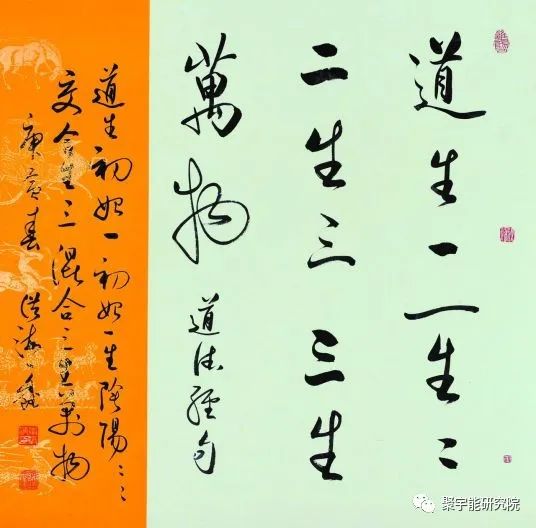 道生一一生二
二生三三生
萬物
道德經句
道生初始一初始一生陰陽二二
交合生三混合三生萬物
庚寅春
聚宇能研究院